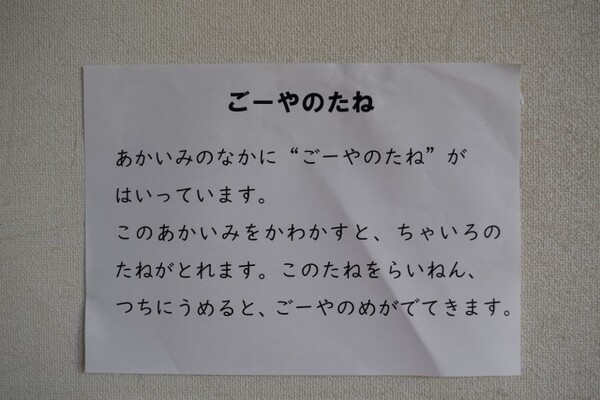 ごーやのたね
あかいみのなかに“ごーやのたね”が
はいっています。
このあかいみをかわかすと、ちゃいろの
たねがとれます。このたねをらいねん、
つちにうめると、ごーやのめがでてきます。